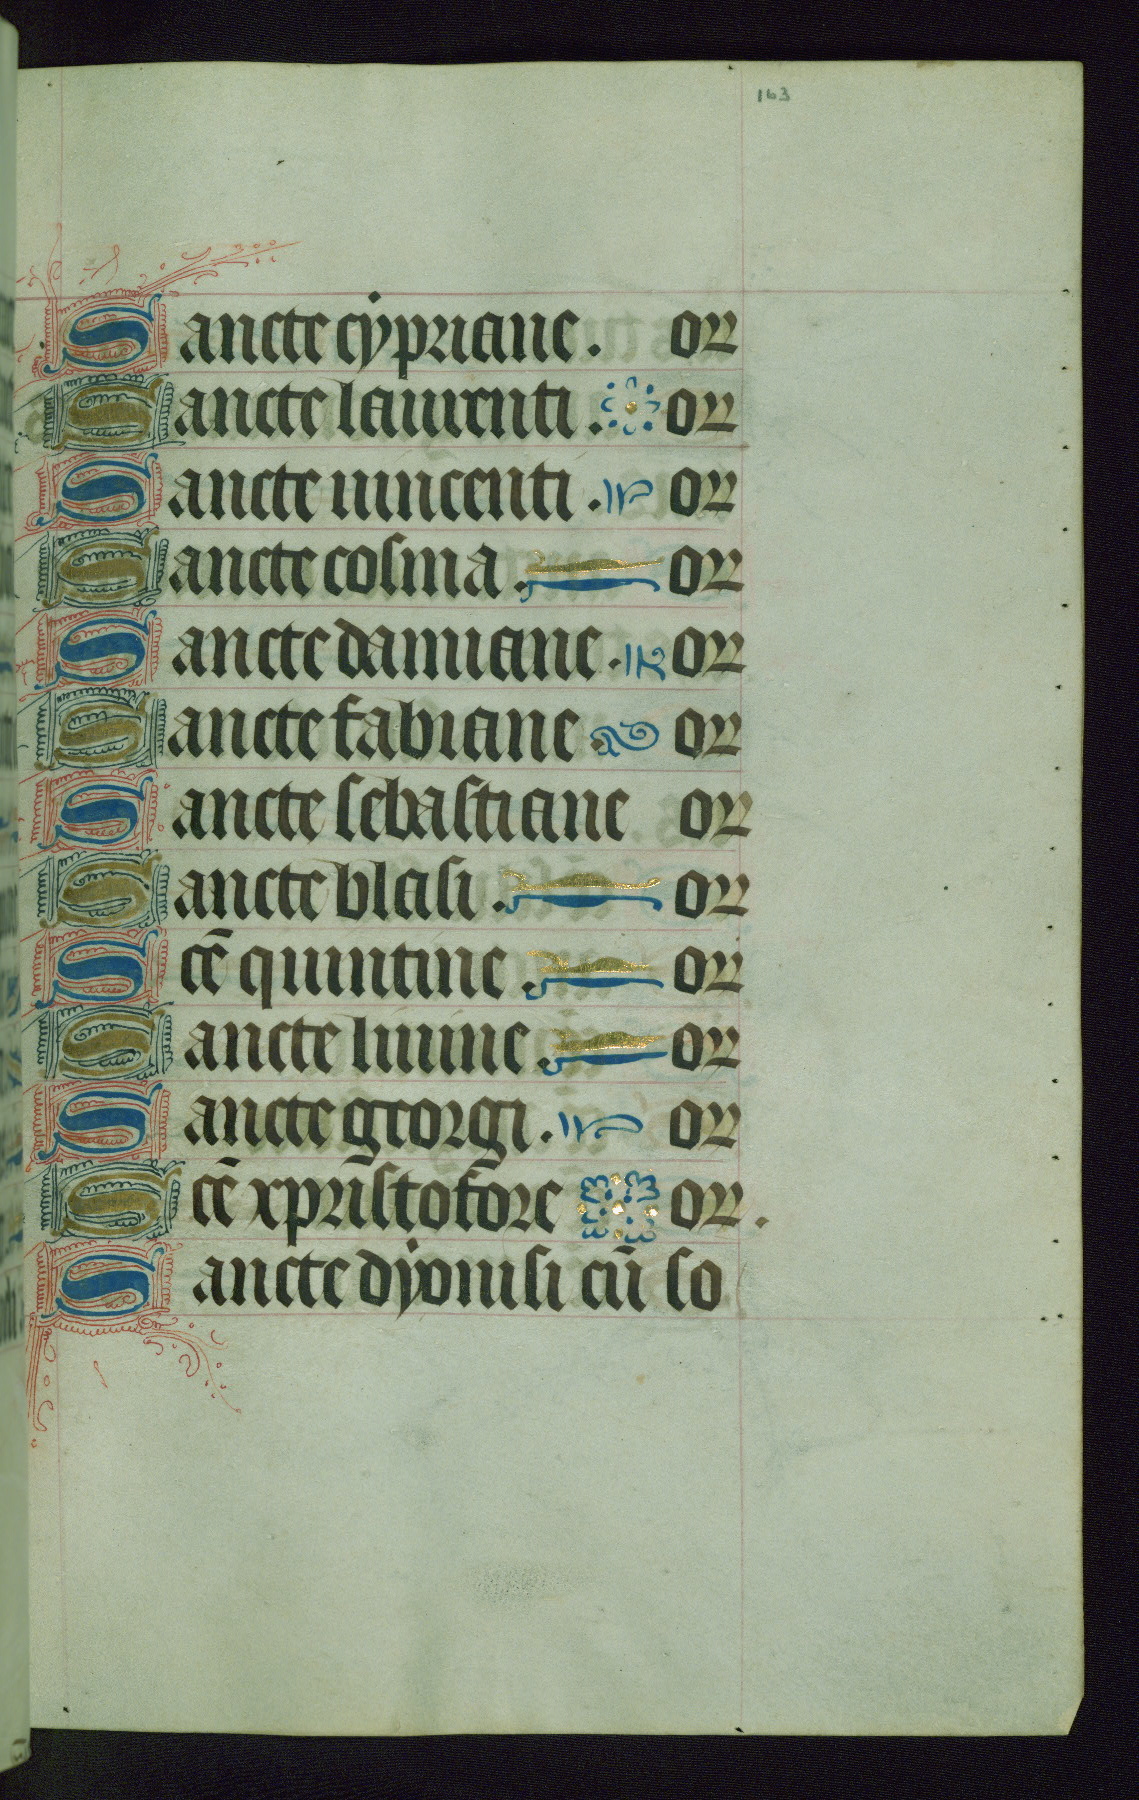 163
Sancte cypriane. or
Sancte laurenti. or
Sancte uincenti. or
Sancte cosma. or
Sancte damiane. or
Sancte fabiane. or
Sancte sebastiane or
Sancte blasi. or
Scē quintine. or
Sancte liuine. or
Sancte georgi. or
Scē xp̄ristofore or.
Sancte dyonisi cū so